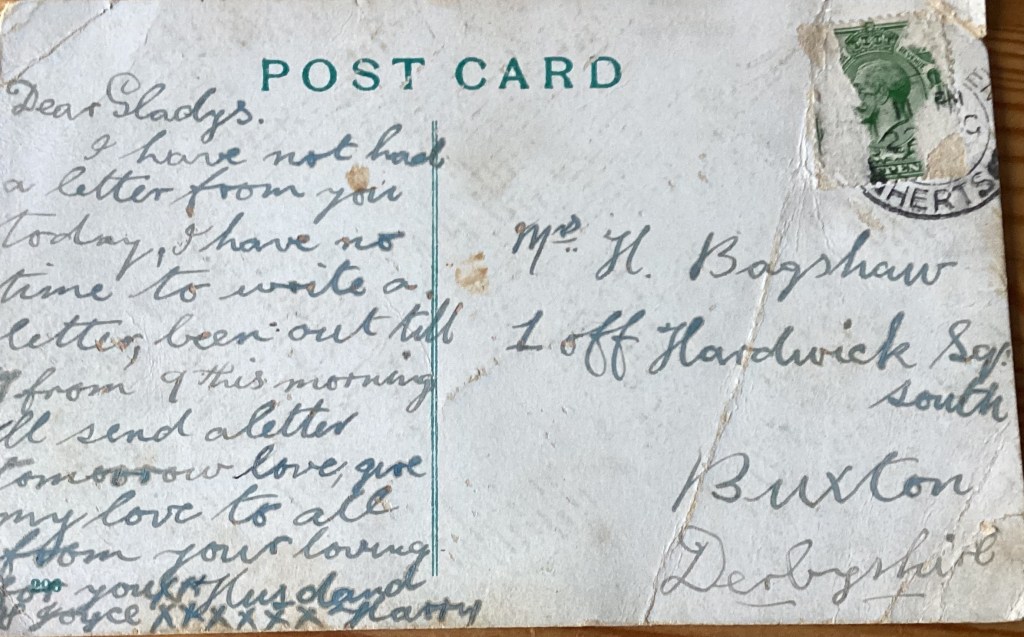 POST CARD
Dear Gladys.
I have not had
a letter from you
today, I have no
time to write a
letter, been out till
7 from 9 this morning
ll send a letter
tomorrow love, give
my love to all
from your loving
for you xx Husdand
& Joyce xxxxxx Harry
290
Mrs. H. Bagshaw
1 off Hardwick Sq.
south
Buxton
Derbyshire
HERTS